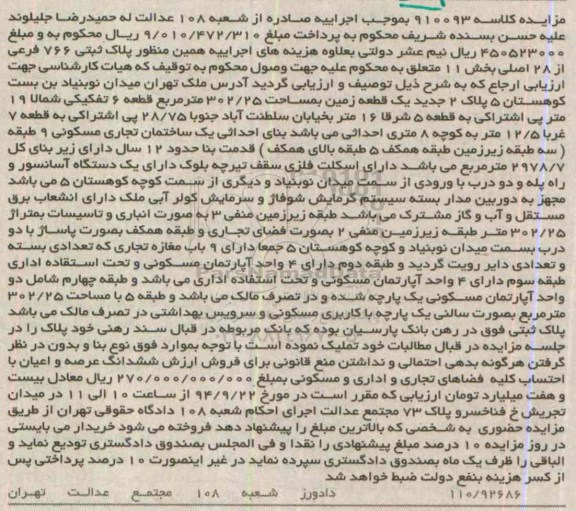 مزایده کلاسه ۹۱۰۰۹۳ بموجب اجراییه صادره از شعبه ۱۰۸ عدالت له حمیدرضا جلیلوند
علیه حسن بسنده شریف محکوم به پرداخت مبلغ ۹/۰۱۰/۴۷۲/۳۱۰ ریال محکوم به و مبلغ
۴۵۰۵۲۳۰۰۰ ریال نیم عشر دولتی بعلاوه هزینه های اجراییه همین منظور پلاک ثبتی ۷۶۶ فرعی
از ۲۸ اصلی بخش ۱۱ متعلق به محکوم علیه جهت وصول محکوم به توقیف که هیات کارشناسی جهت
ارزیابی ارجاع که به شرح ذیل توصیف و ارزیابی گردید آدرس ملک تهران میدان نوبنیاد بن بست
کوهستان ۵ پلاک ۲ جدید یک قطعه زمین بمساحت ۳۰۲/۲۵ مترمربع قطعه ۶ تفکیکی شمالا ۱۹
متر پی اشتراکی به قطعه ۵ شرقا ۱۶ متر بخیابان سلطنت آباد جنوبا ۲۸/۷۵ پی اشتراکی به قطعه ۷
غربا ۱۲/۵ متر به کوچه ۸ متری احداثی می باشد بنای احداثی یک ساختمان تجاری مسکونی ۹ طبقه
( سه طبقه زیرزمین طبقه همکف ۵ طبقه بالای همکف ) قدمت بنا حدود ۱۲ سال دارای زیر بنای کل
۲۹۷۸/۷ مترمربع می باشد دارای اسکلت فلزی سقف تیرچه بلوک دارای یک دستگاه آسانسور و
راه پله و دو درب با ورودی از سمت میدان نوبنیاد و دیگری از سمت کوچه کوهستان ۵ می باشد
مجهز به دوربین مدار بسته سیستم گرمایش شوفاژ و سرمایش کولر آبی ملک دارای انشعاب برق
مستقل و آب و گاز مشترک می باشد طبقه زیرزمین منفی ۳ به صورت انباری و تاسیسات بمتراژ
۳۰۲/۲۵ متر طبقه زیرزمین منفی ۲ بصورت فضای تجاری و طبقه همکف بصورت پاساژ با دو
درب بسمت میدان نوبنیاد و کوچه کوهستان ۵ جمعا دارای ۹ باب مغازه تجاری که تعدادی بسته
و تعدادی دایر رویت گردید و طبقه دوم دارای ۴ واحد آپارتمان مسکونی و تحت استفاده اداری
طبقه سوم دارای ۴ واحد آپارتمان مسکونی و تحت استفاده اداری می باشد و طبقه چهارم شامل دو
واحد آپارتمان مسکونی یک پارچه شده و در تصرف مالک می باشد و طبقه ۵ با مساحت ۳۰۲/۲۵
مترمربع بصورت سالنی یک پارچه با کاربری مسکونی و سرویس بهداشتی در تصرف مالک می باشد
پلاک ثبتی فوق در رهن بانک پارسیان بوده که بانک مربوطه در قبال سند رهنی خود پلاک را در
جلسه مزایده در قبال مطالبات خود تملیک نموده است با توجه بموارد فوق نوع بنا و بدون در نظر
گرفتن هرگونه بدهی احتمالی و نداشتن منع قانونی برای فروش ارزش ششدانگ عرصه و اعیان با
احتساب کلیه فضاهای تجاری و اداری و مسکونی بمبلغ ۲۷۰/۰۰۰/۰۰۰/۰۰۰ ریال معادل بیست
و هفت میلیارد تومان ارزیابی که مقرر است در مورخ ۹۴/۹/۲۲ از ساعت ۱۰ الی ۱۱ در میدان
تجریش خ فناخسرو پلاک ۷۳ مجتمع عدالت اجرای احکام شعبه ۱۰۸ دادگاه حقوقی تهران از طریق
مزایده حضوری به شخصی که بالاترین مبلغ را پیشنهاد دهد فروخته می شود خریدار می بایستی
در روز مزایده ۱۰ درصد مبلغ پیشنهادی را نقدا و فی المجلس بصندوق دادگستری تودیع نماید و
الباقی را ظرف یک ماه بصندوق دادگستری سپرده نماید در غیر اینصورت ۱۰ درصد پرداختی پس
از کسر هزینه بنفع دولت ضبط خواهد شد
۱۱۰/۹۲۶۸۶ دادورز شعبه ۱۰۸ مجتمع عدالت تهران